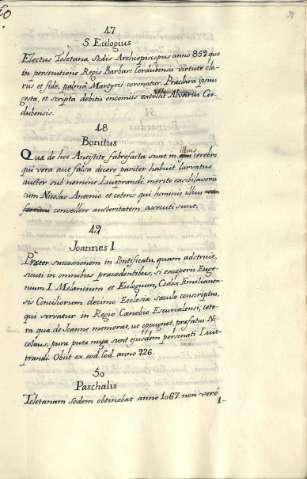 47
S. Eulogius
Electus Toletanæ Sedis Archiepiscopus anno 859 quo
in persecutione Regis Barbari Cordubensis virtute cla-
rus et fide, palma Martyris coronatur. Præclara ipsius
gesta, et scripta debitis encomiis extollit Alvarus Cor-
dubensis.
48
Bonitus
Quæ de hoc Antistite fabrefacta sunt in illius
qui vera aut falsa dicere pariter habuit
auctor sub nomine Luitprandi, merito
cum Nicolao Antonio et ceteris qui hominis illius
convellere austeritatem assueti sunt.
49
Joannes I
Præter successionem in Pontificatu quam adstruit,
sicuti in omnibus præcedentibus, si exceperis Euge-
nium I. Melantium et Eulogium, Codex Emilianen-
sis Conciliorum decimo Ecclesiæ sæculo conscriptus,
qui servatur in Regio Cænobio Escurialensi, cete-
ra quæ de Joanne memorat, ut opponet, præfatus Ni-
colaus, pura puta sunt ejusdem personati Luit-
prandi. Obiit ex eod. cod. anno 926.
50
Paschalis
Toletanam sedem obtinebat anno 1067. non verò